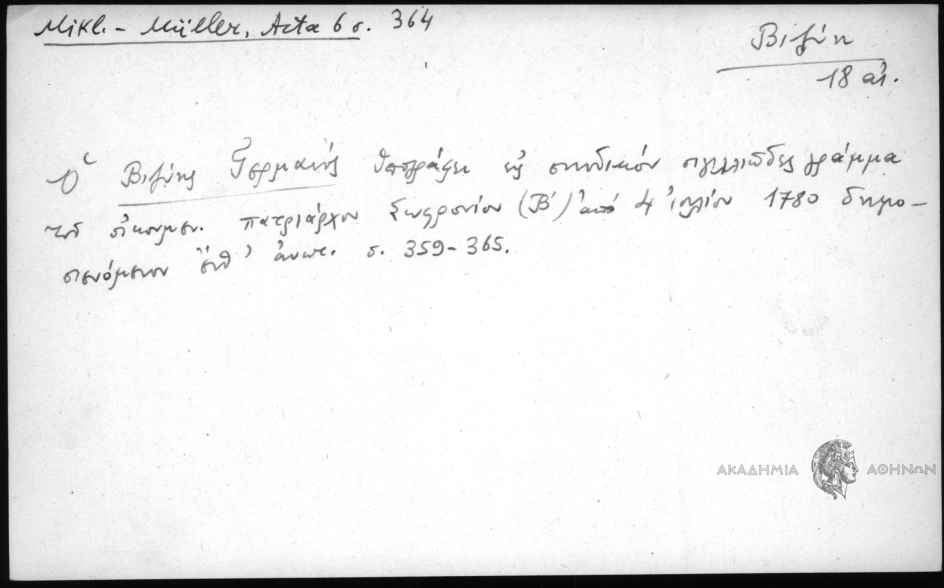 Mikl. - Müller, Acta 6 σ. 364
Βιζύη
18 αἰ.
Ὁ Βιζύης Γερμανός ὑπογράφει εἰς συνοδικόν σιγιλλιῶδες γράμμα
τοῦ οἰκουμεν. πατριάρχου Σωφρονίου (Β΄) ἀπό 4 ἰουλίου 1780 δημο-
σιευόμενον ἔνθ' ἀνωτ. σ. 359-365.
ΑΚΑΔΗΜΙΑ ΑΘΗΝΩΝ